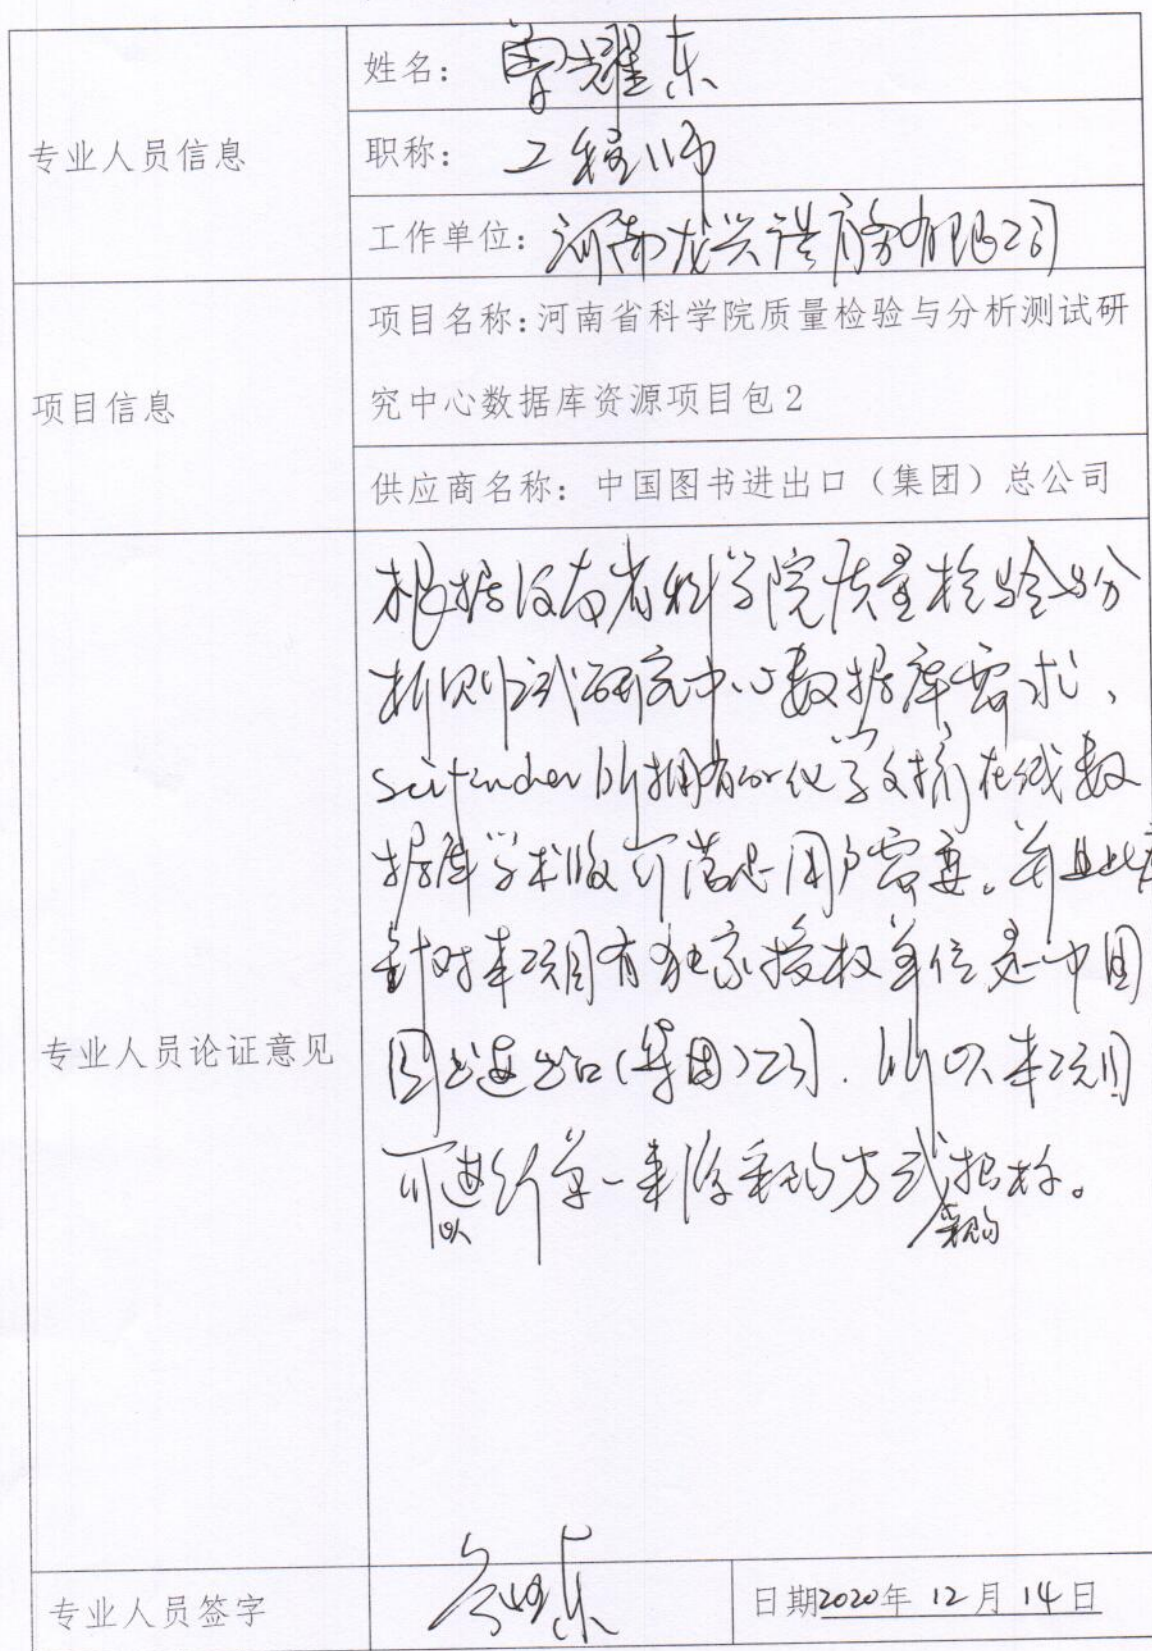 专业人员信息
姓名：曾耀东
职称：工程师
工作单位：河南龙兴 有限公司
项目信息
项目名称：河南省科学院质量检验与分析测试研
究中心数据库资源项目包2
供应商名称：中国图书进出口（集团）总公司
专业人员论证意见
根据河南省科学院质量检验与分
析测试研究中心数据库需求，
scifinder所拥有的化学文摘在线数
据库学术版可满足用户需要。并且此库
针对本项目有独家授权单位是中国
图书进出口(集团)公司. 所以本项目
可以进行单一来源采购方式采购。
专业人员签字
日期2020年12月14日